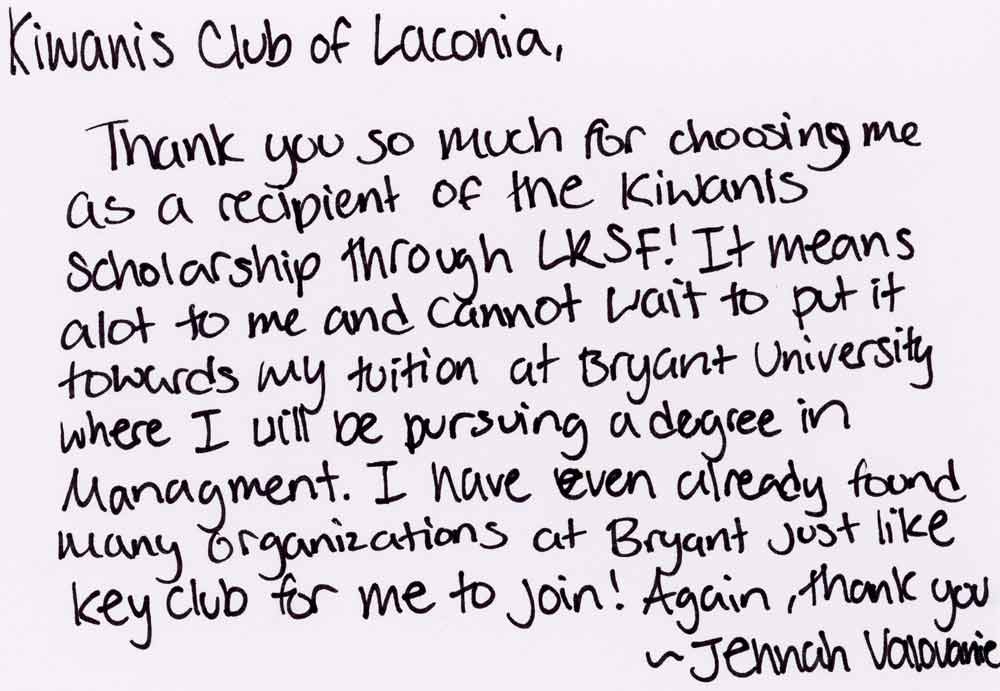 Kiwanis Club of Laconia,
Thank you so much for choosing me
as a recipient of the Kiwanis
Scholarship through LRSF! It means
alot to me and cannot wait to put it
towards my tuition at Bryant University
where I will be pursuing a degree in
Managment. I have even already found
many organizations at Bryant just like
key club for me to join! Again, thank you
~Jennah Valovanie